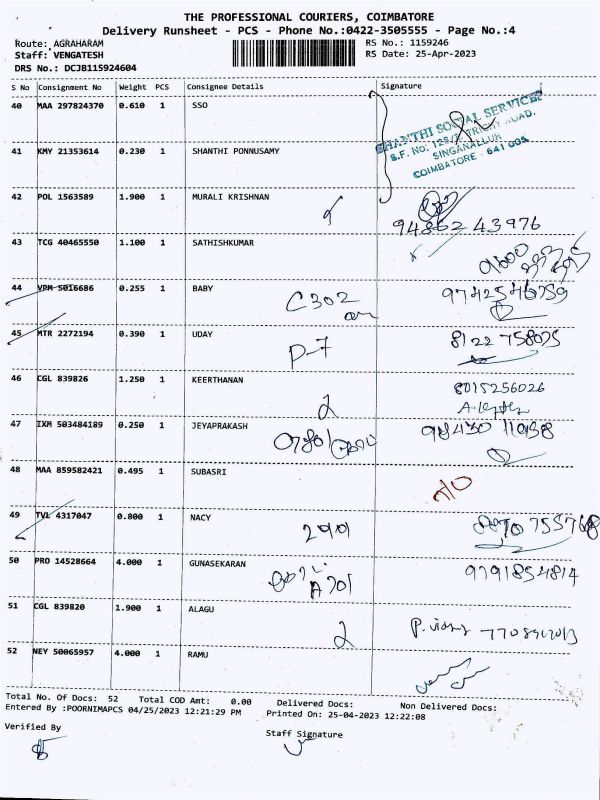 THE PROFESSIONAL COURIERS, COIMBATORE
Delivery Runsheet - PCS - Phone No.:0422-3505555 - Page No.:4
Route: AGRAHARAM RS No.: 1159246
Staff: VENGATESH RS Date: 25-Apr-2023
DRS No.: DCJB115924604
S No Consignment No Weight PCS Consignee Details Signature
40 MAA 297824370 0.610 1 SSO
SHANTHI SOCIAL SERVICES
SINGANALLUR
COIMBATORE - 641 005
41 KMY 21353614 0.230 1 SHANTHI PONNUSAMY
42 POL 1563589 1.900 1 MURALI KRISHNAN
94862 43976
43 TCG 40465550 1.100 1 SATHISHKUMAR
44 VPM 5016686 0.255 1 BABY C302 9742546759
45 MTR 2272194 0.390 1 UDAY D-7 8122 758075
46 CGL 839826 1.250 1 KEERTHANAN 2 8015256026
47 IXM 503484189 0.250 1 JEYAPRAKASH
48 MAA 859582421 0.495 1 SUBASRI
49 TVL 4317047 0.800 1 NACY
50 PRO 14528664 4.000 1 GUNASEKARAN A701 9791854814
51 CGL 839820 1.900 1 ALAGU 2
52 NEY 50065957 4.000 1 RAMU
Total No. Of Docs: 52 Total COD Amt: 0.00 Delivered Docs: Non Delivered Docs:
Entered By :POORNIMAPCS 04/25/2023 12:21:29 PM Printed On: 25-04-2023 12:22:08
Verified By Staff Signature